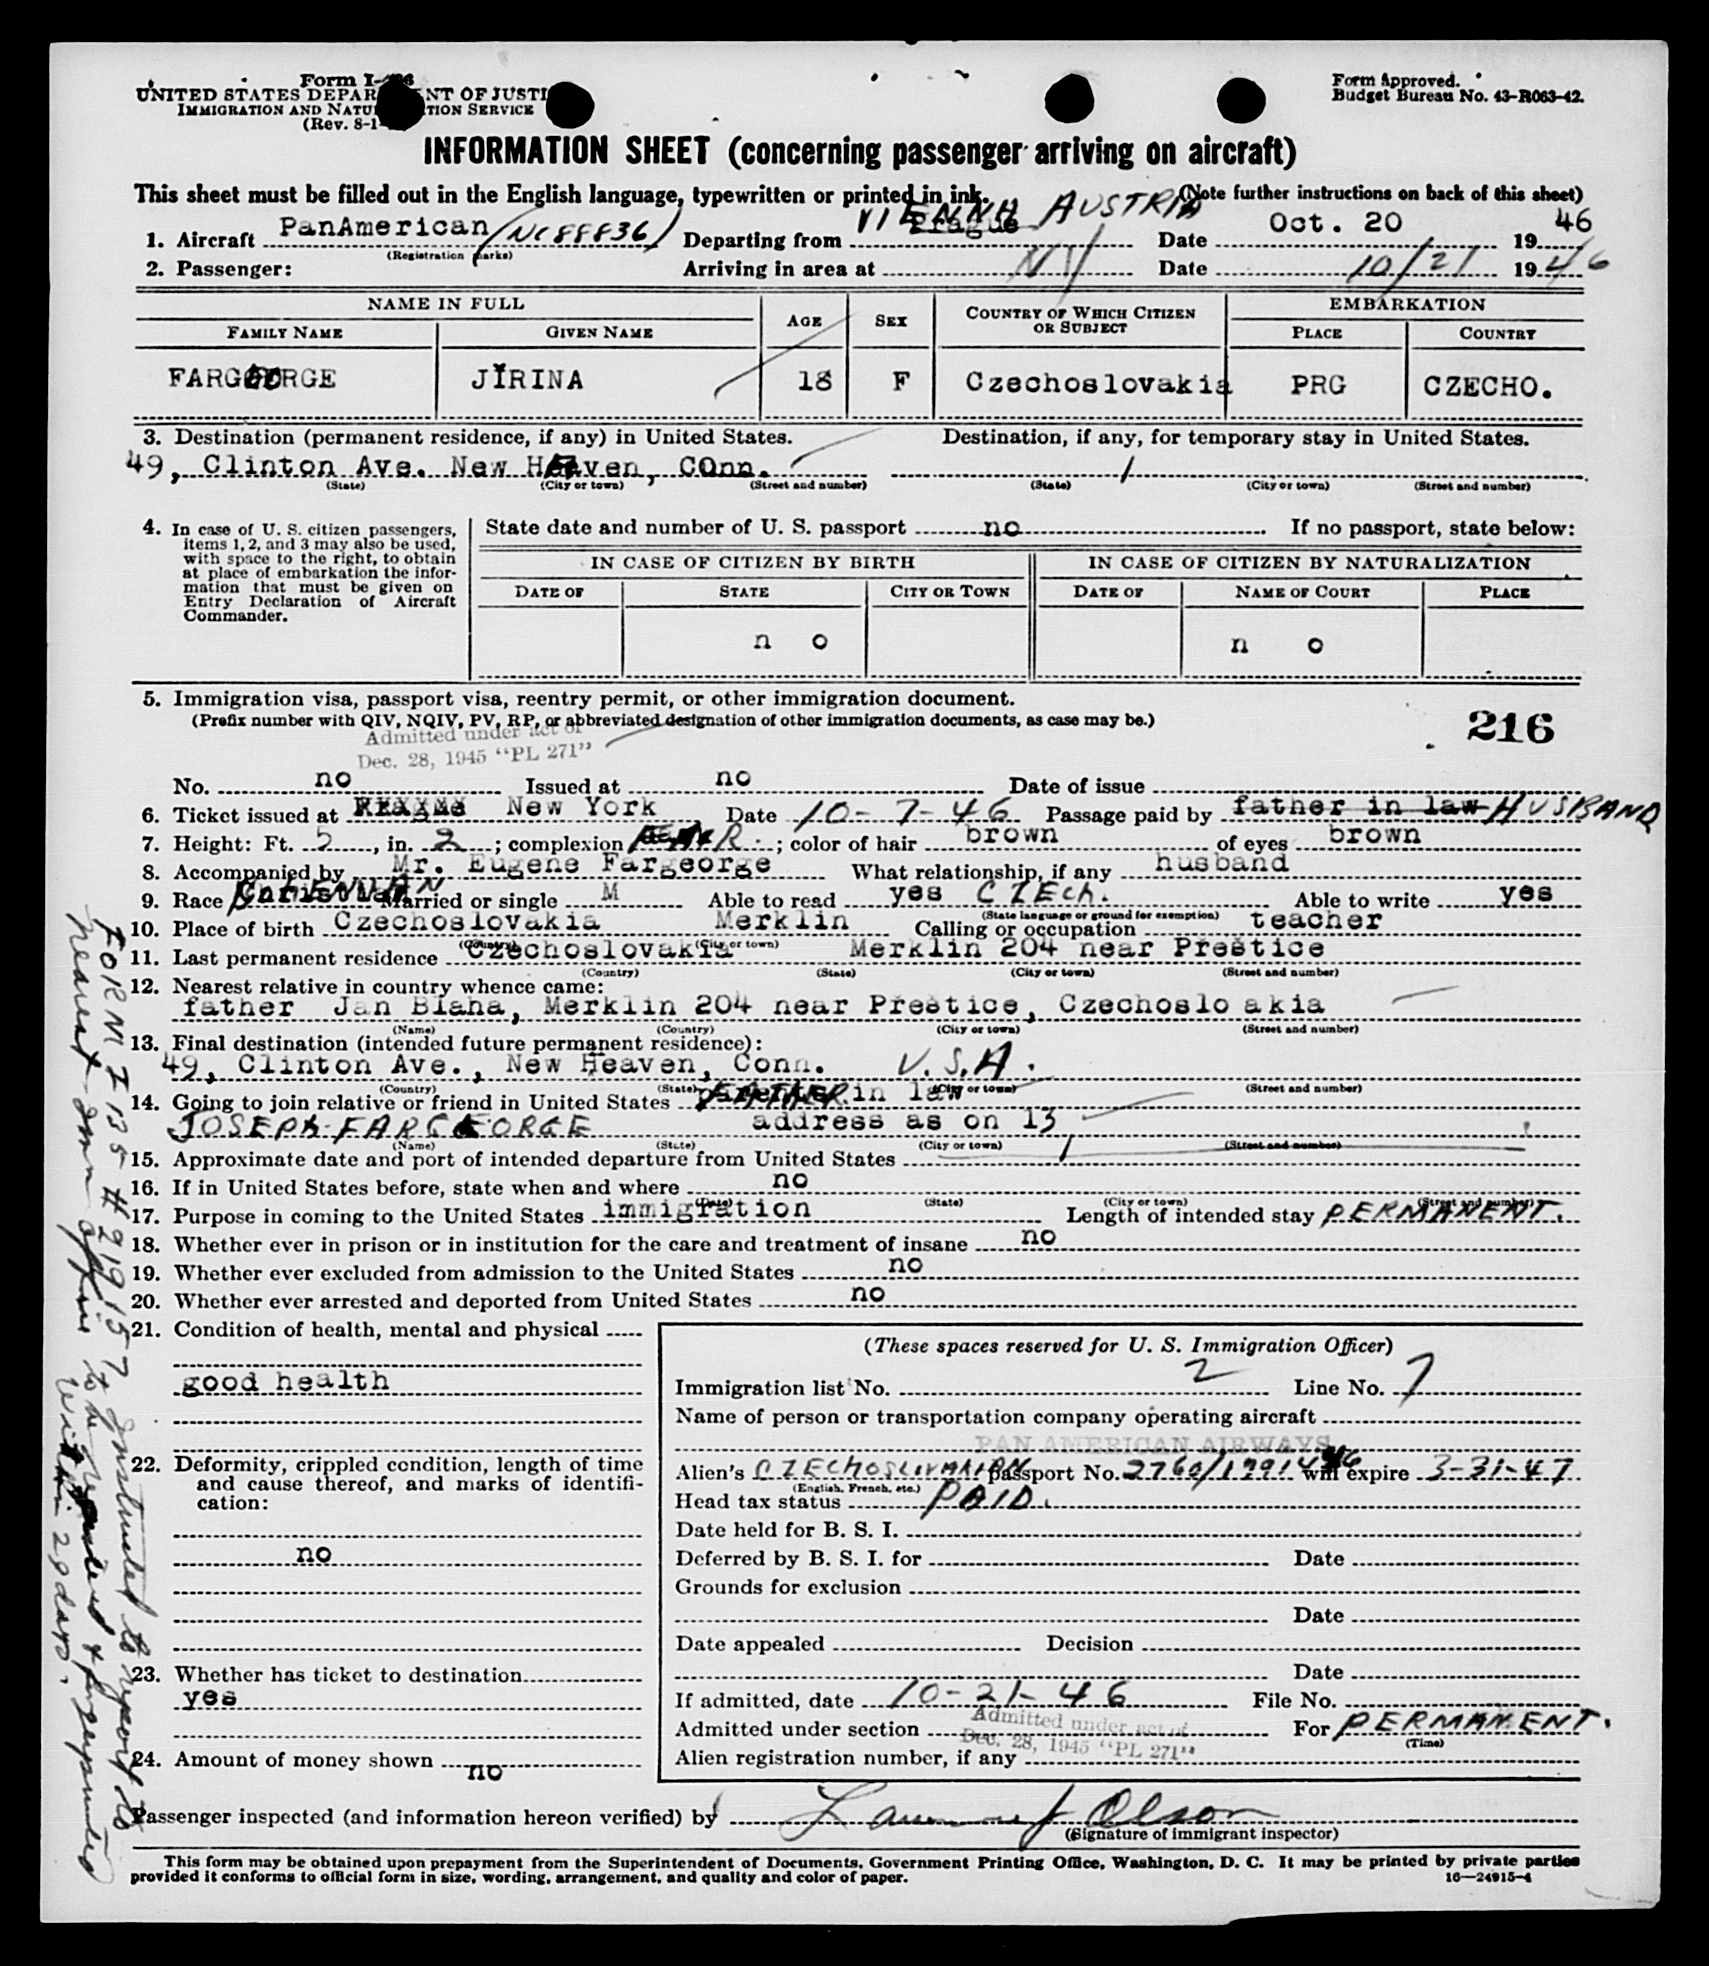 Form I-
UNITED STATES DEPAR NT OF JUSTI
IMMIGRATION AND NATU TION SERVICE
(Rev. 8-1-
Form Approved.
Budget Bureau No. 43-R063-42.
INFORMATION SHEET (concerning passenger arriving on aircraft)
This sheet must be filled out in the English language, typewritten or printed in ink. (Note further instructions on back of this sheet)
1. Aircraft PanAmerican (NC88836) Departing from Prague VIENNA AUSTRIA Date Oct. 20 1946
(Registration marks)
2. Passenger: Arriving in area at NY Date 10/21 1946
NAME IN FULL AGE SEX COUNTRY OF WHICH CITIZEN OR SUBJECT EMBARKATION
FAMILY NAME GIVEN NAME PLACE COUNTRY
FARGEORGE JIRINA 18 F Czechoslovakia PRG CZECHO.
3. Destination (permanent residence, if any) in United States. Destination, if any, for temporary stay in United States.
49, Clinton Ave. New Haven, COnn. /
(State) (City or town) (Street and number) (State) (City or town) (Street and number)
4. In case of U. S. citizen passengers, items 1, 2, and 3 may also be used, with space to the right, to obtain at place of embarkation the information that must be given on Entry Declaration of Aircraft Commander.
State date and number of U. S. passport no If no passport, state below:
IN CASE OF CITIZEN BY BIRTH IN CASE OF CITIZEN BY NATURALIZATION
DATE OF STATE CITY OR TOWN DATE OF NAME OF COURT PLACE
n o n o
5. Immigration visa, passport visa, reentry permit, or other immigration document.
(Prefix number with QIV, NQIV, PV, RP, or abbreviated designation of other immigration documents, as case may be.)
216
Admitted under act of
Dec. 28, 1945 "PL 271"
No. no Issued at no Date of issue
6. Ticket issued at New York Date 10-7-46 Passage paid by father in law HUSBAND
7. Height: Ft. 5, in. 2; complexion ; color of hair brown of eyes brown
8. Accompanied by Mr. Eugene Fargeorge What relationship, if any husband
9. Race Married or single M Able to read yes CZECH. Able to write yes
(State language or ground for exemption)
10. Place of birth Czechoslovakia Merklin Calling or occupation teacher
(Country) (City or town)
11. Last permanent residence Czechoslovakia Merklin 204 near Přeštice
(Country) (State) (City or town) (Street and number)
12. Nearest relative in country whence came:
father Jan Blaha, Merklin 204 near Přeštice, Czechoslo akia
(Name) (Country) (City or town) (Street and number)
13. Final destination (intended future permanent residence):
49, Clinton Ave., New Heaven, Conn. U.S.A.
(Country) (State) (City or town) (Street and number)
14. Going to join relative or friend in United States FATHER in law
JOSEPH FARGEORGE address as on 13
(Name) (State) (City or town) (Street and number)
15. Approximate date and port of intended departure from United States /
16. If in United States before, state when and where no
(Date) (State) (City or town) (Street and number)
17. Purpose in coming to the United States immigration Length of intended stay PERMANENT.
18. Whether ever in prison or in institution for the care and treatment of insane no
19. Whether ever excluded from admission to the United States no
20. Whether ever arrested and deported from United States no
21. Condition of health, mental and physical
good health
22. Deformity, crippled condition, length of time and cause thereof, and marks of identification:
no
23. Whether has ticket to destination
yes
24. Amount of money shown no
(These spaces reserved for U. S. Immigration Officer)
Immigration list No. 2 Line No. 7
Name of person or transportation company operating aircraft
PAN AMERICAN AIRWAYS
Alien's CZECHOSLOVAKIAN passport No. will expire 3-31-47
(English, French, etc.)
Head tax status PAID.
Date held for B. S. I.
Deferred by B. S. I. for Date
Grounds for exclusion
Date
Date appealed Decision
Date
If admitted, date 10-21-46 File No.
Admitted under section Admitted under act of Dec. 28, 1945 "PL 271" For PERMANENT.
(Time)
Alien registration number, if any
Passenger inspected (and information hereon verified) by Olson
(Signature of immigrant inspector)
This form may be obtained upon prepayment from the Superintendent of Documents, Government Printing Office, Washington, D. C. It may be printed by private parties
provided it conforms to official form in size, wording, arrangement, and quality and color of paper.
16—24915-4
FORM I 135 # 299157 Instructed to report to
nearest Imm office to be fingerprinted
within 28 days.